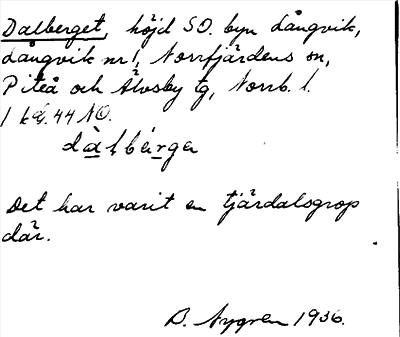 Dalberget, höjd SO. byn Långvik,
Långvik nr 1, Norrfjärdens sn,
Piteå och Älvsby tg, Norrb. l.
44 NO.
dàlbérga
Det har varit en tjärdalsgrop
där.
B. Nygren 1936.